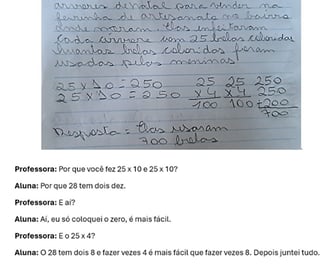 árvores de natal para vender na
feirinha de artesanato no bairro
onde moram. Elas enfeitaram
cada árvore com 25 bolas coloridas
quantas bolas coloridas foram
usadas pelas meninas?
25 x 10 = 250 25 25 250
25 x 10 = 250 x 4 x 4 250
100 100 +200
700
Resposta = Elas usaram
700 bolas
Professora: Por que você fez 25 x 10 e 25 x 10?
Aluna: Por que 28 tem dois dez.
Professora: E aí?
Aluna: Aí, eu só coloquei o zero, é mais fácil.
Professora: E o 25 x 4?
Aluna: O 28 tem dois 8 e fazer vezes 4 é mais fácil que fazer vezes 8. Depois juntei tudo.